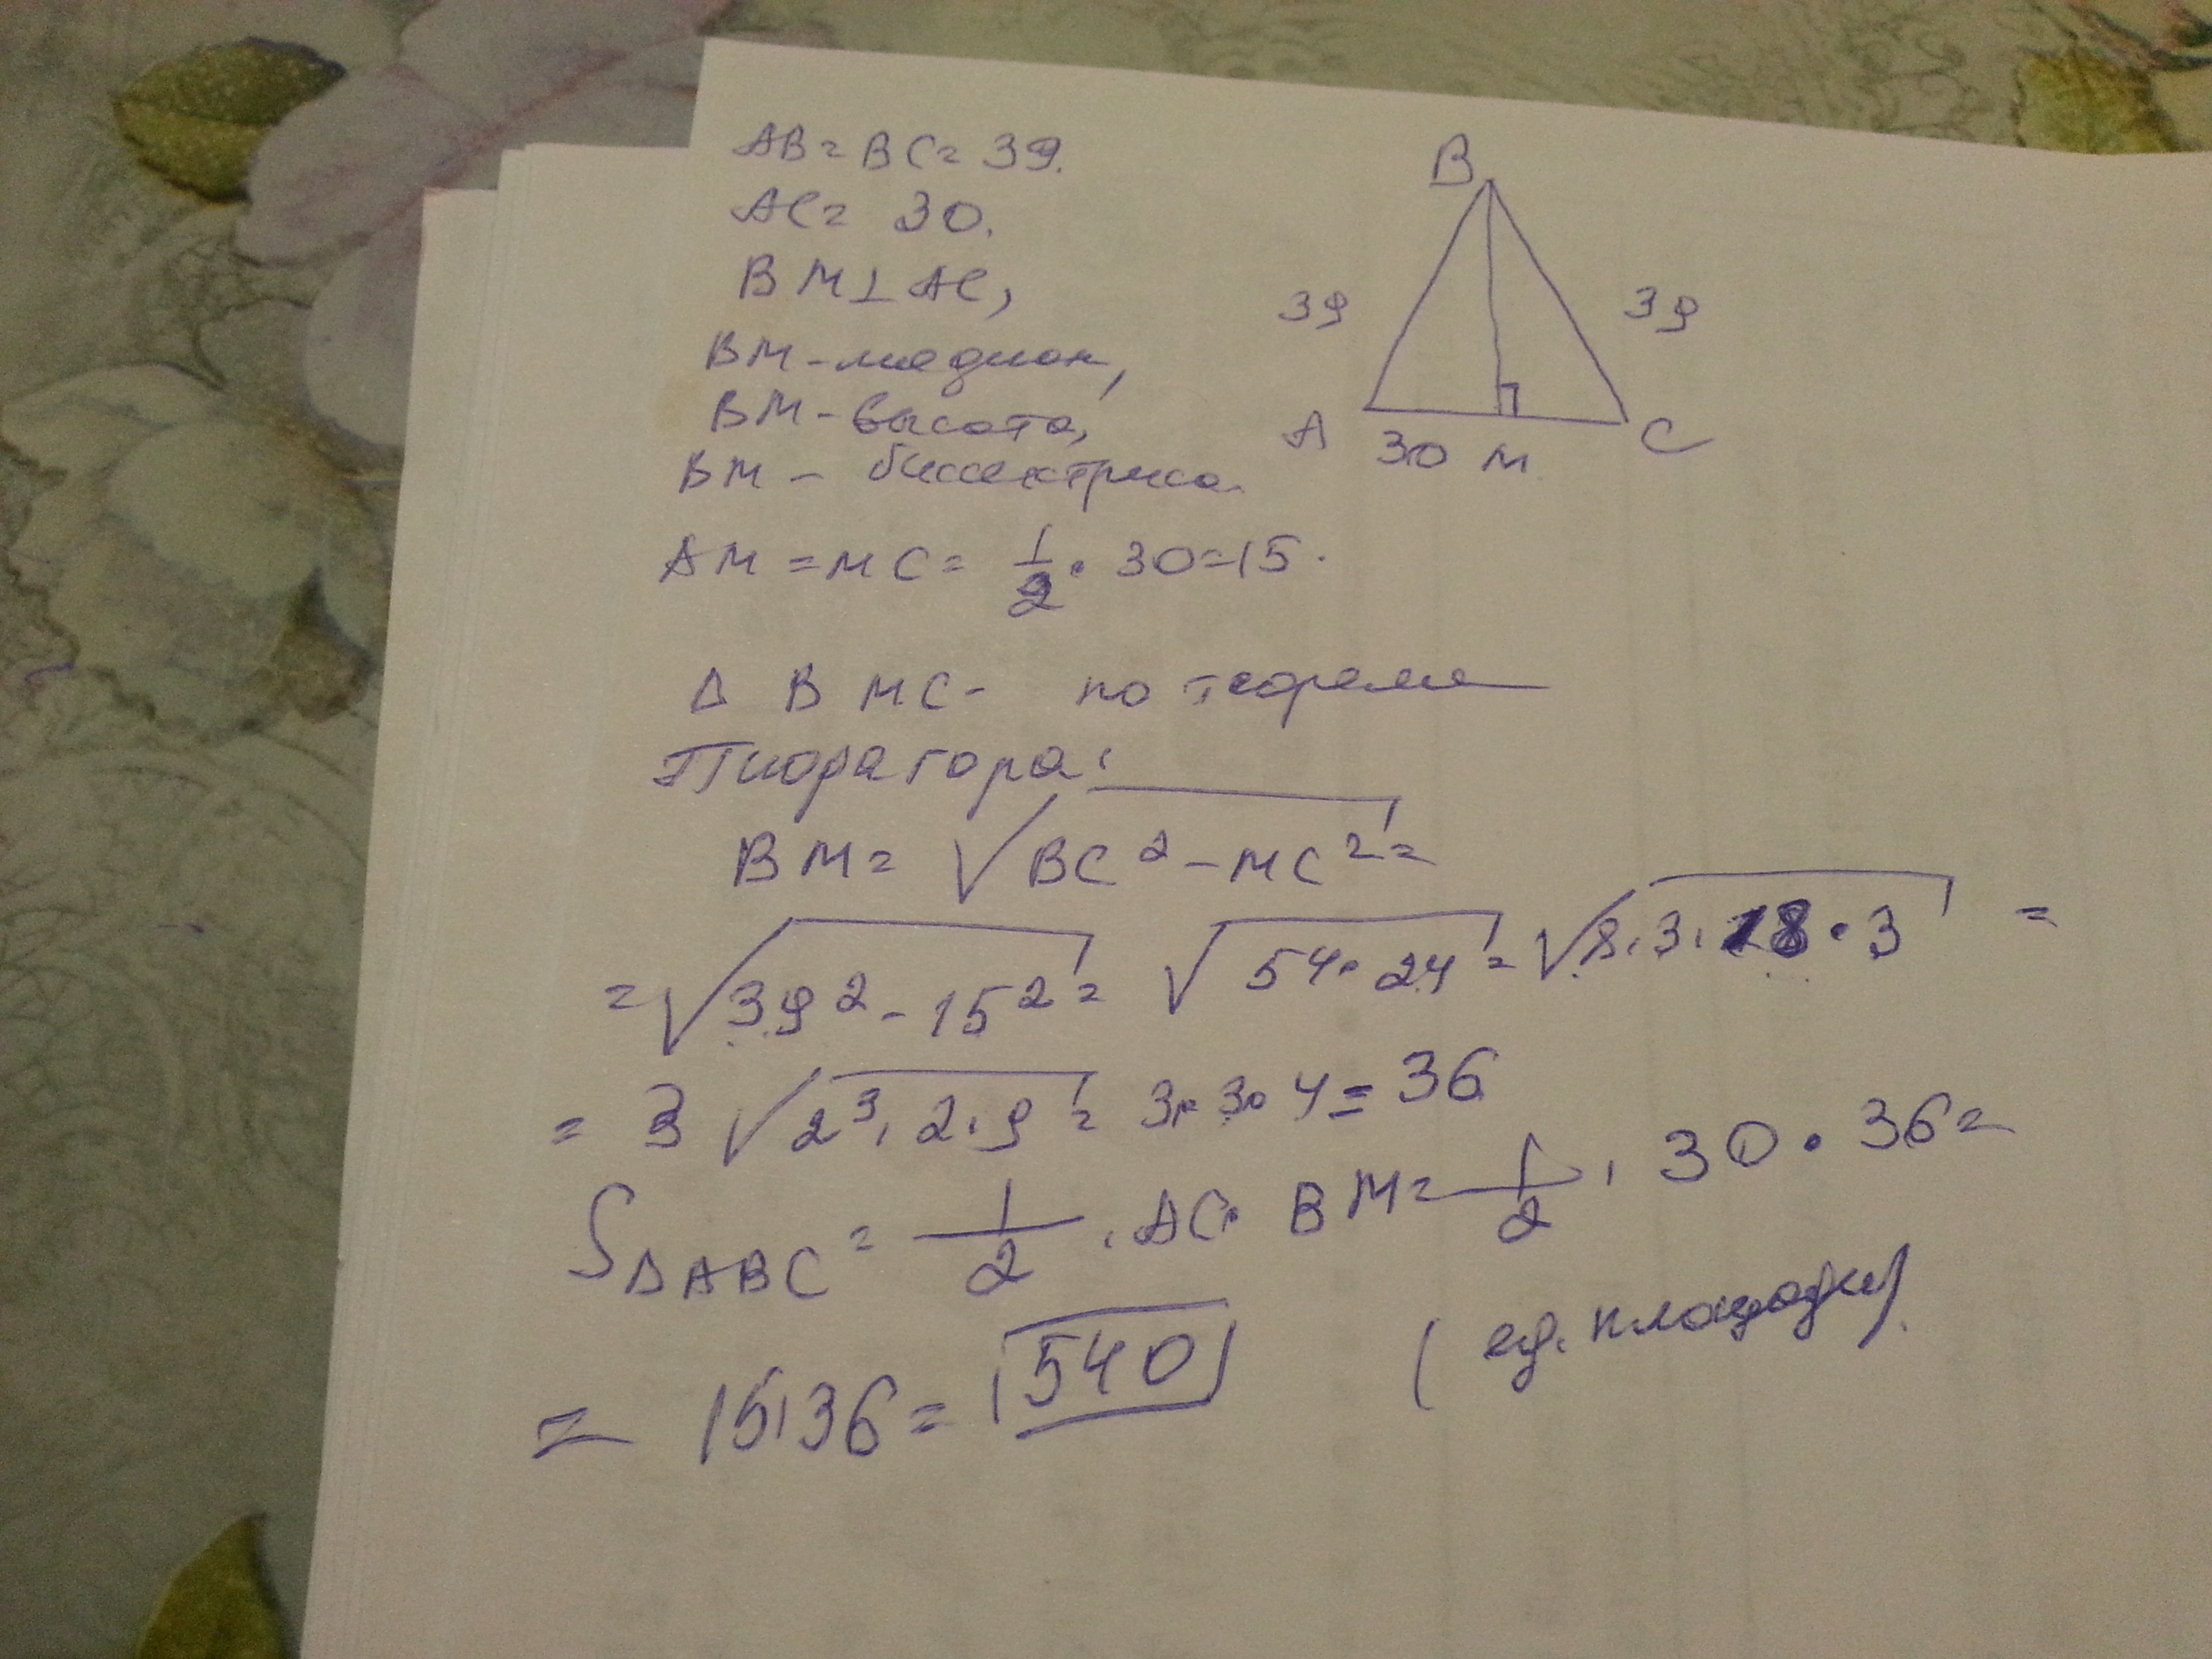 AB = BC = 39.
AC = 30.
BM ⊥ AC,
BM - медиан,
BM - высота,
BM - биссектриса.
AM = MC = 1/2 · 30 = 15.
B
39
39
A
30
M
C
Δ BMC - по теореме
Пифагора:
BM = √(BC² - MC²) =
= √(39² - 15²) = √(54 · 24) = √(8 · 3 · 18 · 3) =
= 3 √(2³ · 2 · 9) = 3 · 3 · 4 = 36
SΔABC = 1/2 · AC · BM = 1/2 · 30 · 36 =
= 15 · 36 = 540 (ед. площади).